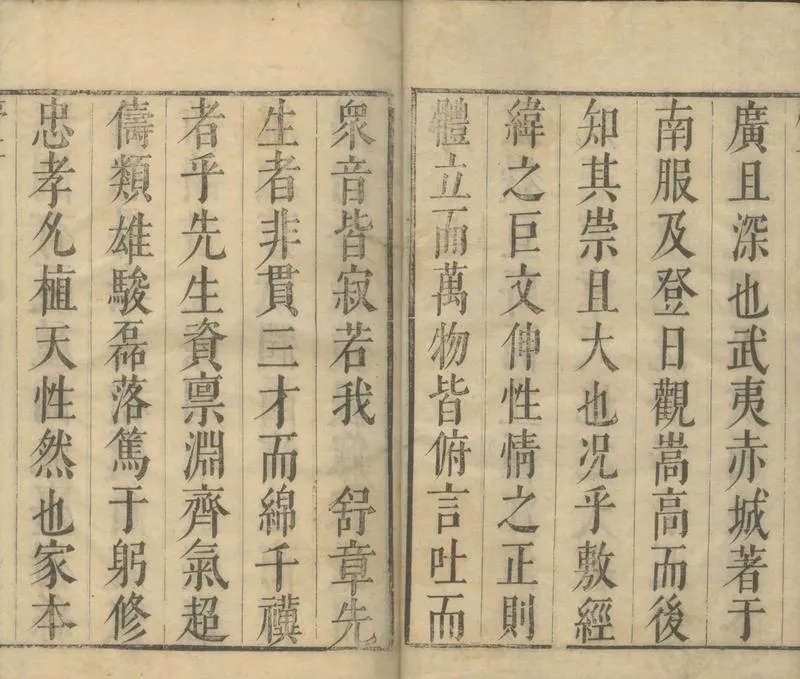 廣且深也武夷赤城著于
南服及登日觀嵩高而後
知其崇且大也況乎敷經
緯之巨文伸性情之正則
體立而萬物皆俯言吐而
衆音皆寂若我 舒章先
生者非貫三才而綿千禩
者乎先生資禀淵齊氣超
儔類雄駿磊落篤于躬修
忠孝夙植天性然也家本